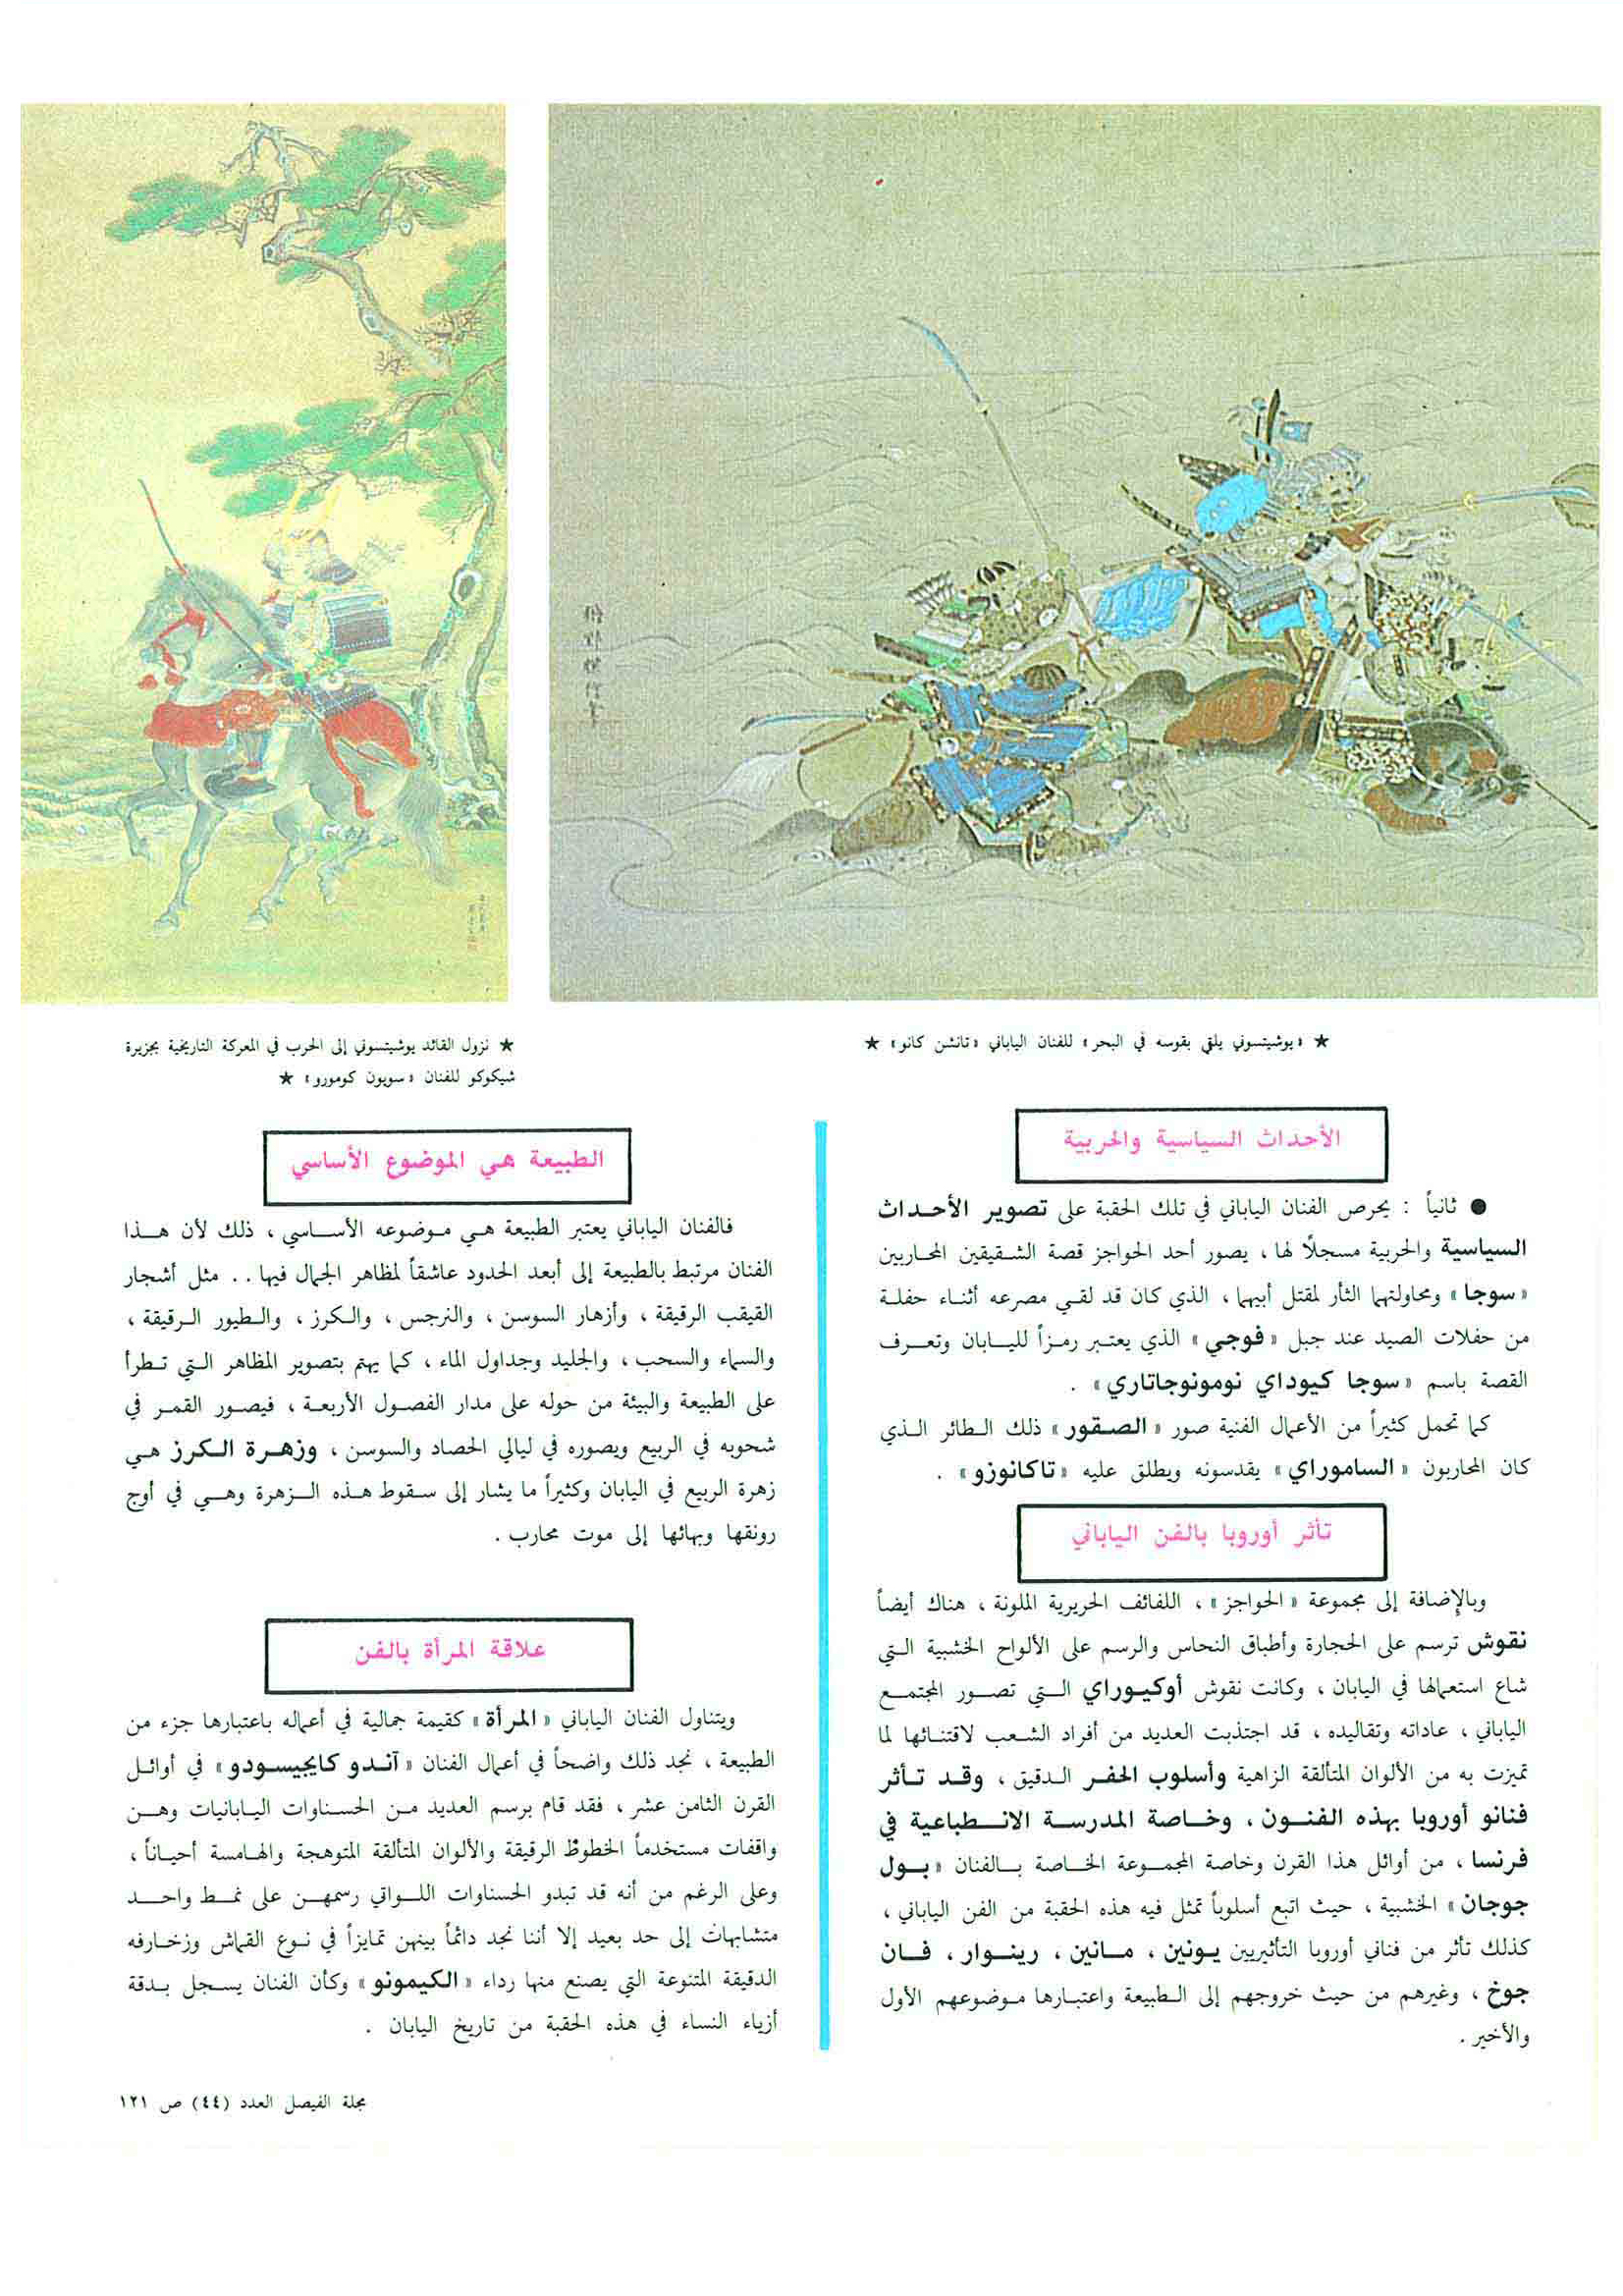 ★ «يوشيتسوني يلقي بقوسه في البحر» للفنان الياباني «تانشن كانو» ★
★ نزول القائد يوشيتسوني إلى الحرب في المعركة التاريخية بجزيرة
شيكوكو للفنان «سويون كومورو» ★
الأحداث السياسية والحربية
● ثانياً : يحرص الفنان الياباني في تلك الحقبة على تصوير الأحداث
السياسية والحربية مسجلاً لها ، يصور أحد الحواجز قصة الشقيقين المحاربين
«سوجا» ومحاولتهما الثأر لمقتل أبيهما ، الذي كان قد لقي مصرعه أثناء حفلة
من حفلات الصيد عند جبل «فوجي» الذي يعتبر رمزاً لليابان وتعرف
القصة باسم «سوجا كيوداي نومونوجاتاري» .
كما تحمل كثيراً من الأعمال الفنية صور «الصقور» ذلك الطائر الذي
كان المحاربون «الساموراي» يقدسونه ويطلق عليه «تاكانوزو» .
تأثر أوروبا بالفن الياباني
وبالإضافة إلى مجموعة «الحواجز» ، اللفائف الحريرية الملونة ، هناك أيضاً
نقوش ترسم على الحجارة وأطباق النحاس والرسم على الألواح الخشبية التي
شاع استعمالها في اليابان ، وكانت نقوش أوكيوراي التي تصور المجتمع
الياباني ، عاداته وتقاليده ، قد اجتذبت العديد من أفراد الشعب لاقتنائها لما
تميزت به من الألوان المتألقة الزاهية وأسلوب الحفر الدقيق ، وقد تأثر
فنانو أوروبا بهذه الفنون ، وخاصة المدرسة الانطباعية في
فرنسا ، من أوائل هذا القرن وخاصة المجموعة الخاصة بالفنان «بول
جوجان» الخشبية ، حيث اتبع أسلوباً تمثل فيه هذه الحقبة من الفن الياباني ،
كذلك تأثر من فناني أوروبا التأثيريين يونين ، مانين ، رينوار ، فان
جوخ ، وغيرهم من حيث خروجهم إلى الطبيعة واعتبارها موضوعهم الأول
والأخير .
الطبيعة هي الموضوع الأساسي
فالفنان الياباني يعتبر الطبيعة هي موضوعه الأساسي ، ذلك لأن هذا
الفنان مرتبط بالطبيعة إلى أبعد الحدود عاشقاً لمظاهر الجمال فيها .. مثل أشجار
القيقب الرقيقة ، وأزهار السوسن ، والنرجس ، والكرز ، والطيور الرقيقة ،
والسماء والسحب ، والجليد وجداول الماء ، كما يهتم بتصوير المظاهر التي تطرأ
على الطبيعة والبيئة من حوله على مدار الفصول الأربعة ، فيصور القمر في
شحوبه في الربيع ويصوره في ليالي الحصاد والسوسن ، وزهرة الكرز هي
زهرة الربيع في اليابان وكثيراً ما يشار إلى سقوط هذه الزهرة وهي في أوج
رونقها وبهائها إلى موت محارب .
علاقة المرأة بالفن
ويتناول الفنان الياباني «المرأة» كقيمة جمالية في أعماله باعتبارها جزء من
الطبيعة ، نجد ذلك واضحاً في أعمال الفنان «آندو كايجيسودو» في أوائل
القرن الثامن عشر ، فقد قام برسم العديد من الحسناوات اليابانيات وهن
واقفات مستخدماً الخطوط الرقيقة والألوان المتألقة المتوهجة والهامسة أحياناً ،
وعلى الرغم من أنه قد تبدو الحسناوات اللواتي رسمهن على نمط واحد
متشابهات إلى حد بعيد إلا أننا نجد دائماً بينهن تمايزاً في نوع القماش وزخارفه
الدقيقة المتنوعة التي يصنع منها رداء «الكيمونو» وكأن الفنان يسجل بدقة
أزياء النساء في هذه الحقبة من تاريخ اليابان .
مجلة الفيصل العدد (٤٤) ص ١٢١